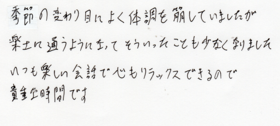 季節の変わり目によく体調を崩していましたが
楽士に通うようになって そういったことも少なくなりました
いつも楽しい会話で心もリラックスできるので
貴重な時間です